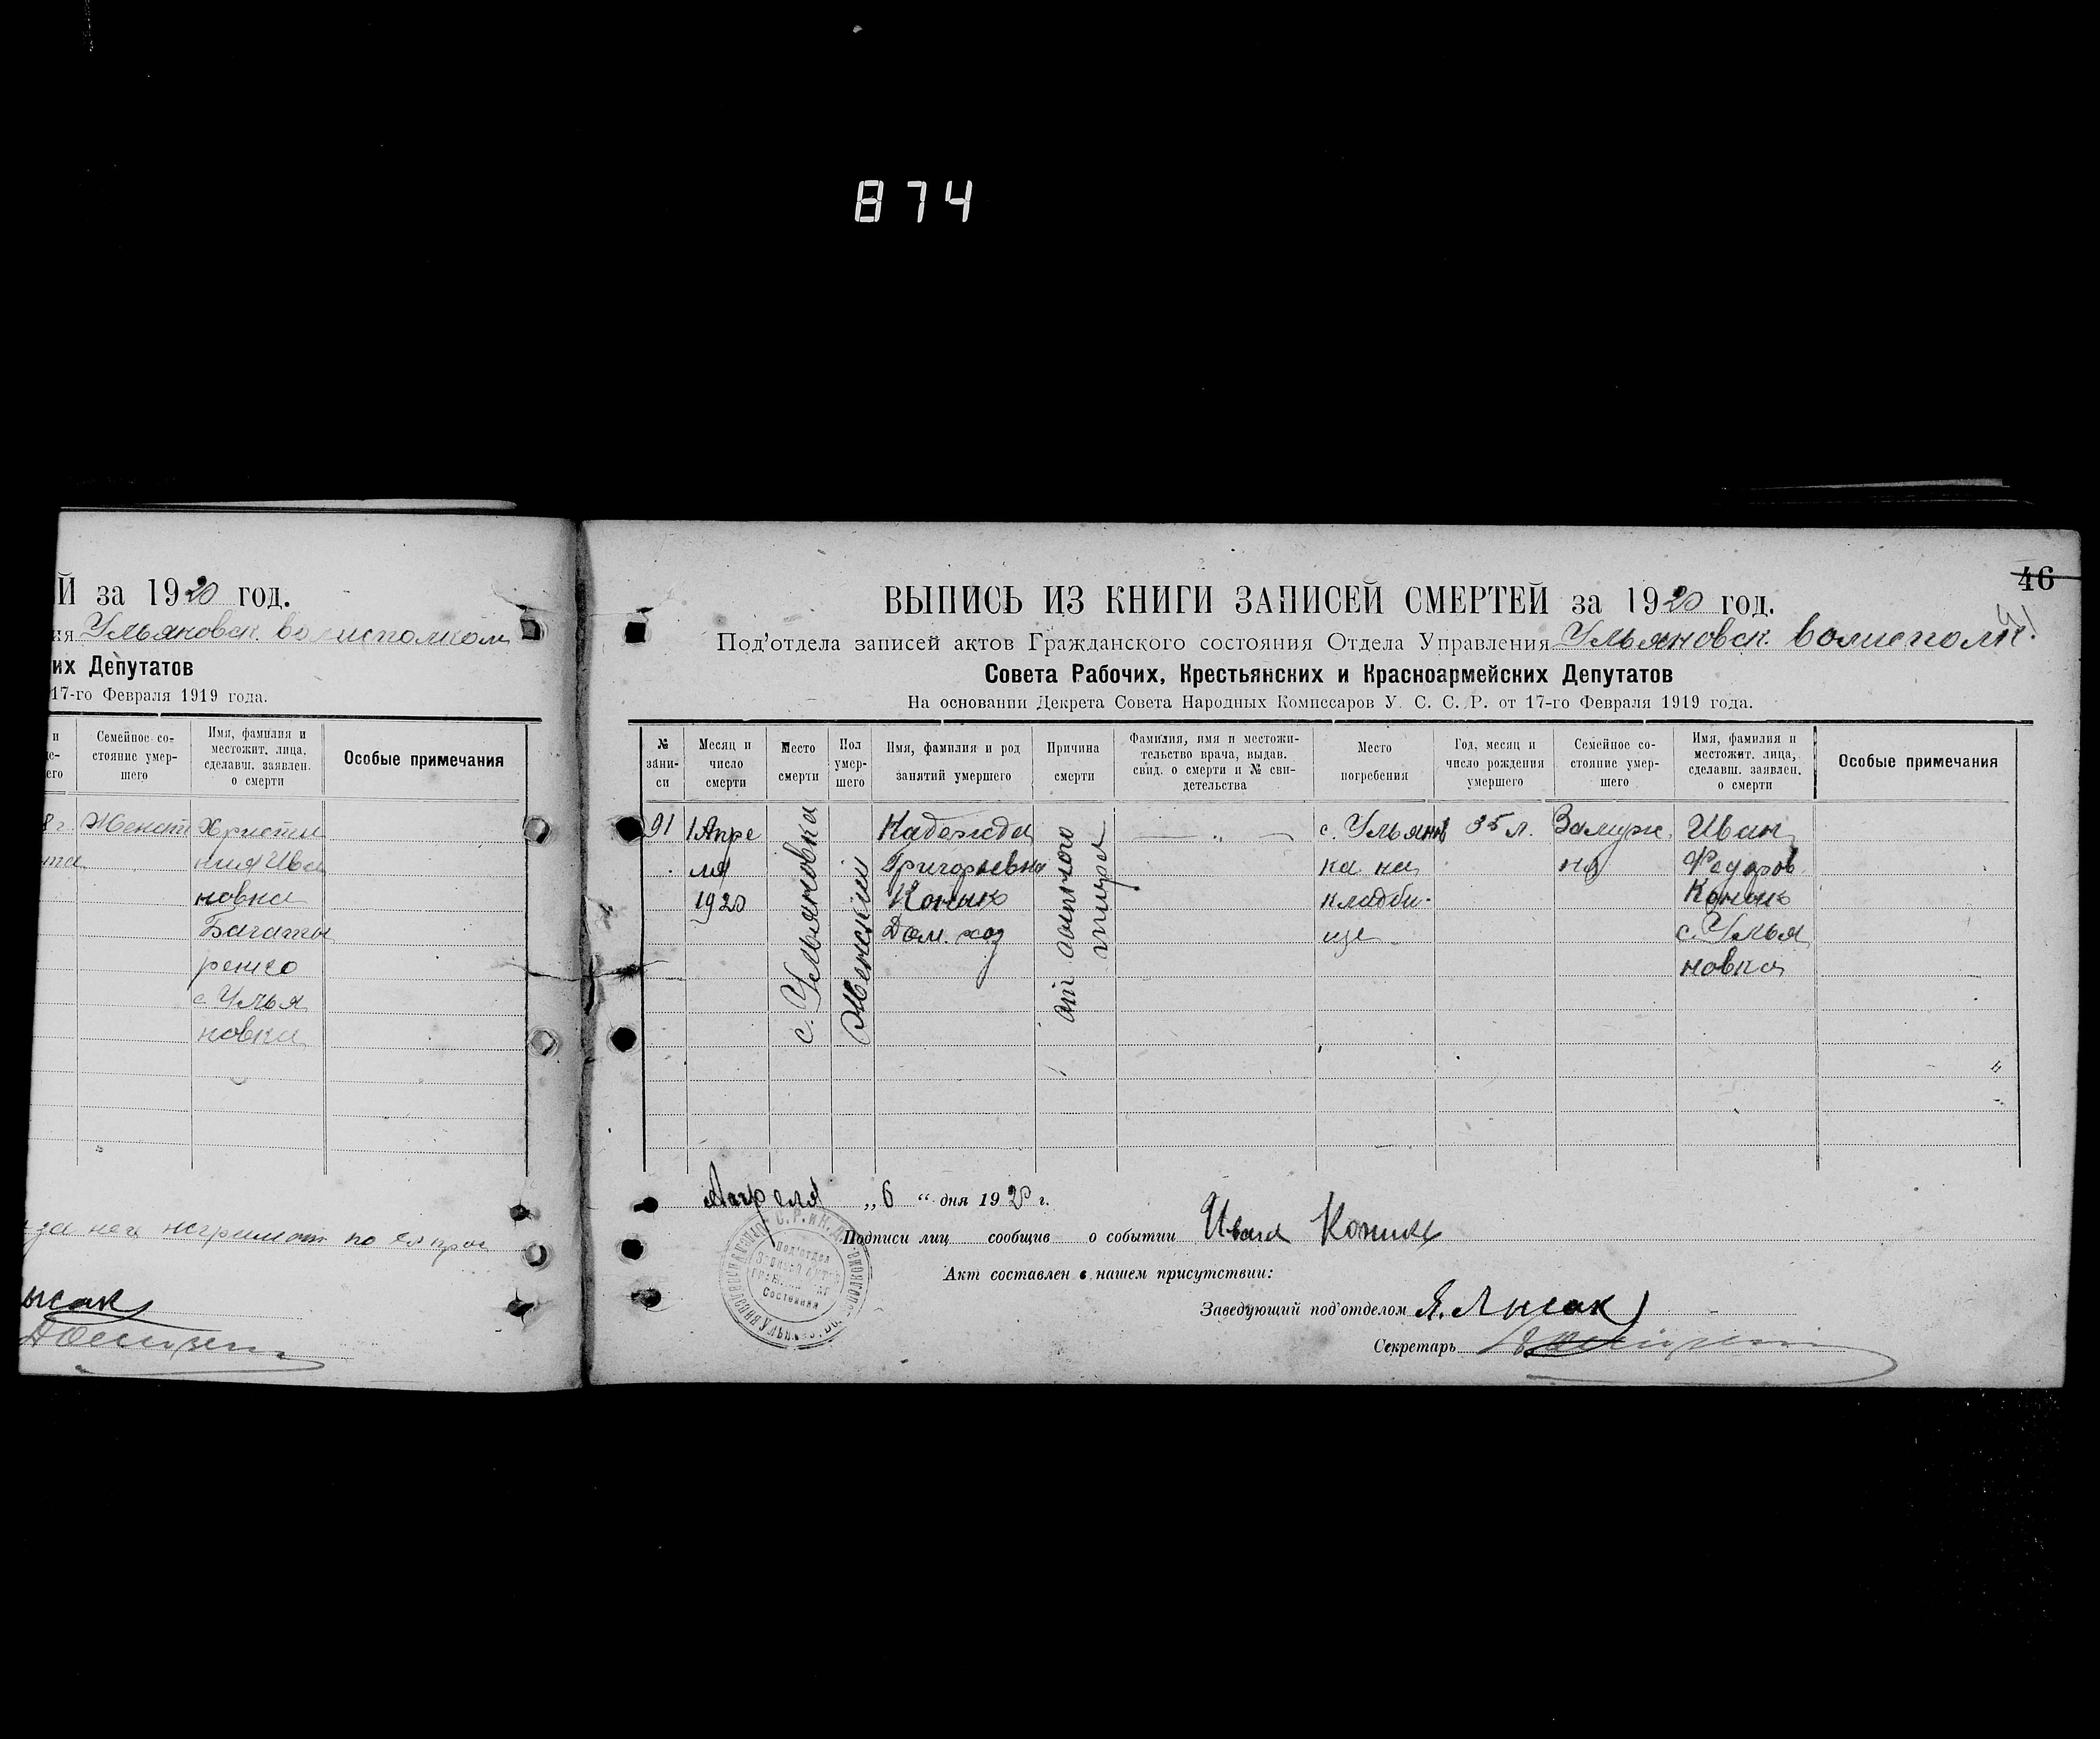 874
Й за 1920 год.
ия Ульяновск. волисполком
их Депутатов
17-го Февраля 1919 года.
Семейное со-
стояние умер-
шего
Имя, фамилия и
местожит. лица,
сделавш. заявлен.
о смерти
Особые примечания
8 г. Женат Христи
ния Ива
новна
Багаты
ренко
с. Улья
новка
46
ВЫПИСЬ ИЗ КНИГИ ЗАПИСЕЙ СМЕРТЕЙ за 1920 год.
Под'отдела записей актов Гражданского состояния Отдела Управления Ульяновск. волисполк.
Совета Рабочих, Крестьянских и Красноармейских Депутатов
На основании Декрета Совета Народных Комиссаров У. С. С. Р. от 17-го Февраля 1919 года.
№
запи-
си
Месяц и
число
смерти
Место
смерти
Пол
умер-
шего
Имя, фамилия и род
занятий умершего
Причина
смерти
Фамилия, имя и местожи-
тельство врача, выдав.
свид. о смерти и № сви-
детельства
Место
погребения
Год, месяц и
число рождения
умершего
Семейное со-
стояние умер-
шего
Имя, фамилия и
местожит. лица,
сделавш. заявлен.
о смерти
Особые примечания
91
1 Апре
ля
1920
с. Ульяновка
Женский
Надежда
Григорьевна
Коник
Дом. хоз
от сыпного
тифа
— „ —
с. Ульянов
ка на
кладби-
ще
35 л.
Замуж.
на
Иван
Федоров
Коник
с. Улья
новка
Апреля „ 6 “ дня 1920 г.
Подписи лиц сообщив о событии Иван Коник
Акт составлен в нашем присутствии:
Заведующий под'отделом Я. Лысак
Секретарь
Под'отдел
Записей актов
Состояния